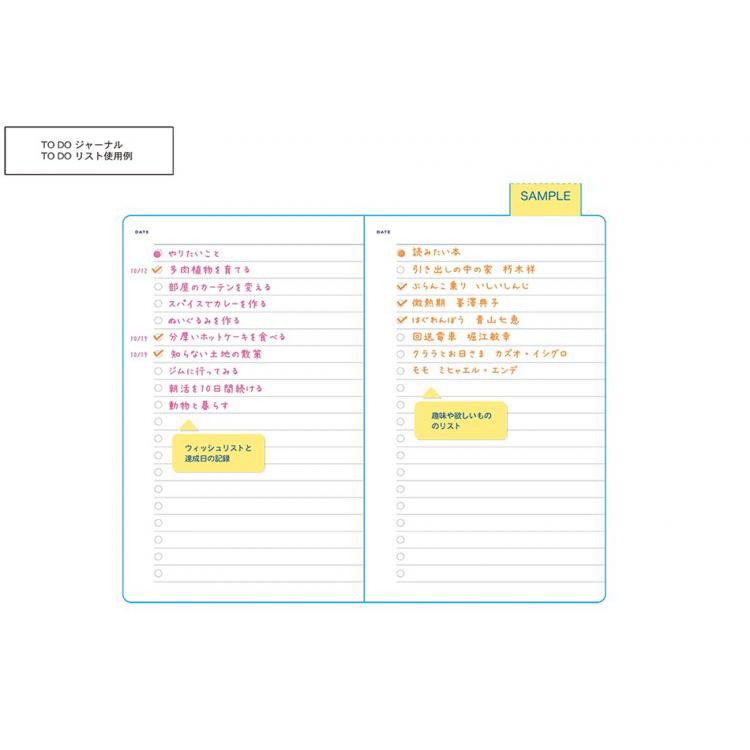 TO DO ジャーナル
TO DO リスト使用例
SAMPLE
DATE
やりたいこと
10/12 多肉植物を育てる
部屋のカーテンを変える
スパイスでカレーを作る
ぬいぐるみを作る
10/19 分厚いホットケーキを食べる
10/19 知らない土地の散策
ジムに行ってみる
朝活を10日間続ける
動物と暮らす
ウィッシュリストと
達成日の記録
DATE
読みたい本
引き出しの中の家 朽木祥
ぶらんこ乗り いしいしんじ
微熱期 峯澤典子
はぐれんぼう 青山七恵
回送電車 堀江敏幸
クララとお日さま カズオ・イシグロ
モモ ミヒャエル・エンデ
趣味や欲しいもの
のリスト